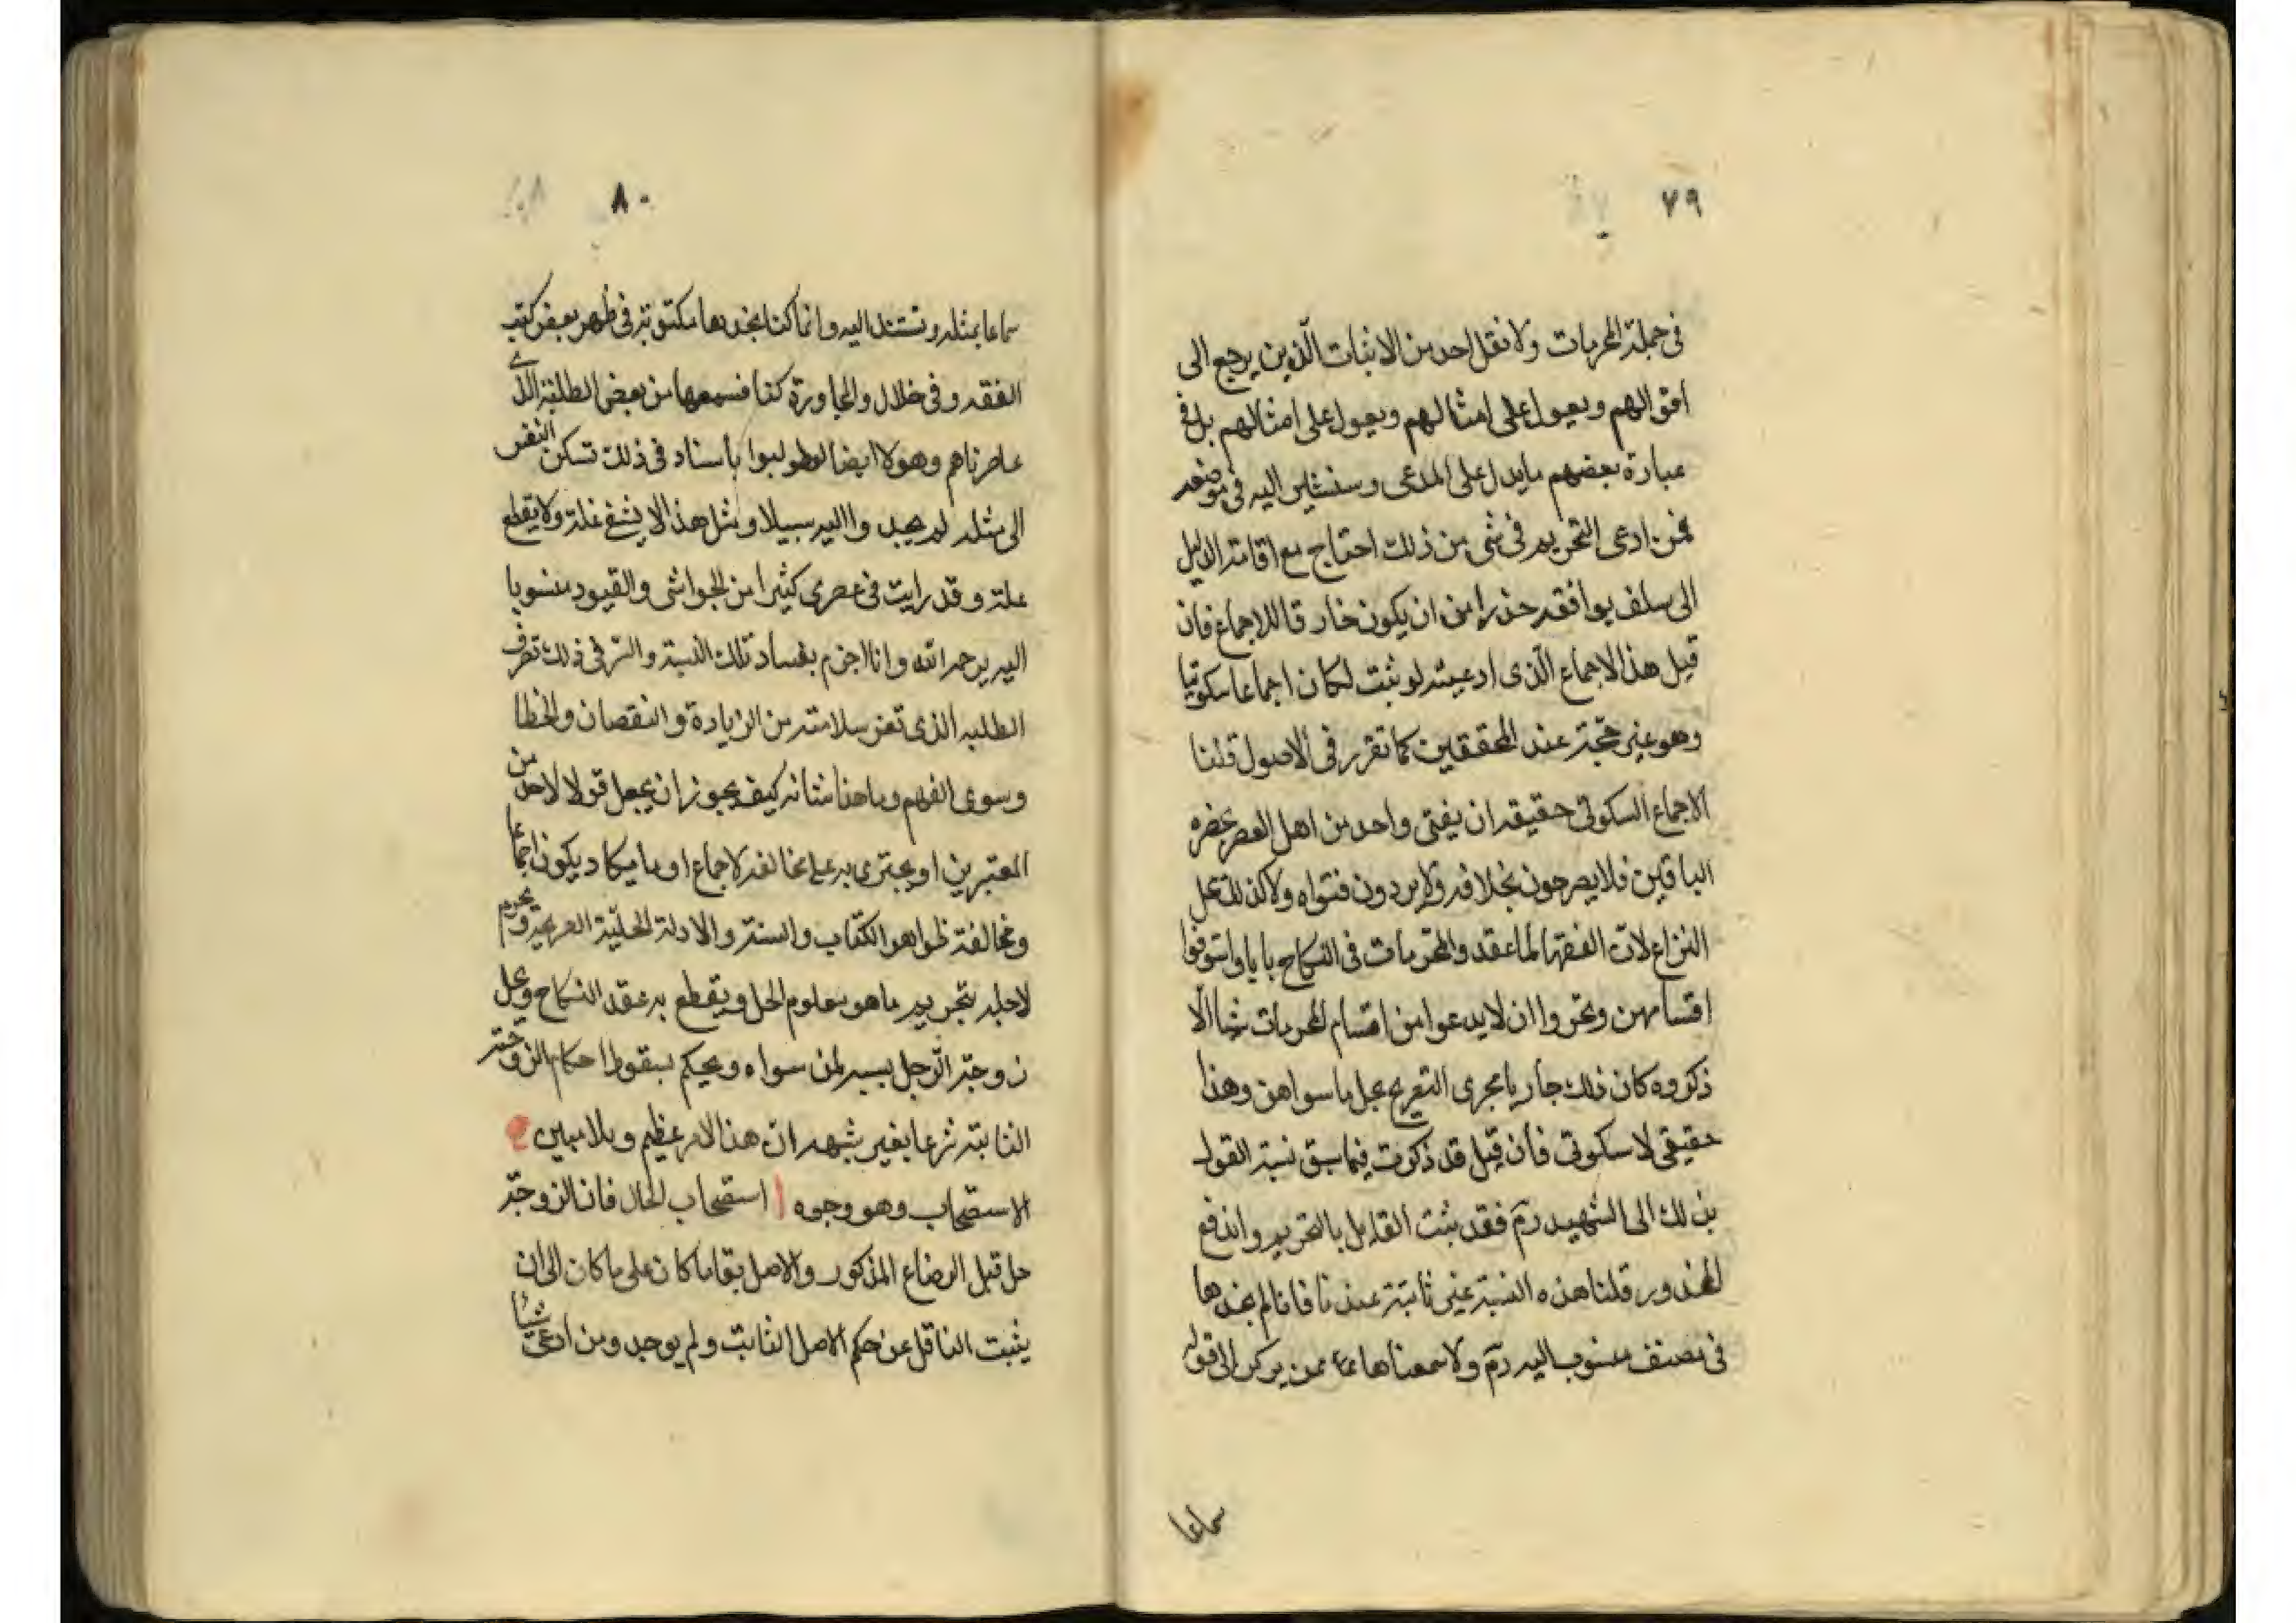 ٧٩
في جملة المحرمات ولا نقل احد من الاثبات الّذين يرجع الى
اقوالهم ويعول على امثالهم ويعول على امثالهم بل في
عبارة بعضهم مايدل على المدعى وسنشير اليه في موضعه
فمن ادعى التحريم في شي من ذلك احتاج مع اقامة الدليل
الى سلف يوافقه حذرا من ان يكون خارقا للاجماع فان
قيل هذا الاجماع الّذى ادعيته لو ثبت لكان اجماعا سكوتيا
وهو غير حجّة عند المحققين كما تقرر في الاصول قلنا
الاجماع السكوتى حقيقة ان يفتى واحد من اهل العصر بحضره
الباقين فلا يصرحون بخلافه ولا يردون فتواه ولا كذلك محل
النزاع لانّ الفقها لما عقدوا المحرمات في النكاح بابا واستوفوا
اقسامهن وتحروا ان لا يدعوا من اقسام المحرمات شيا الّا
ذكروه كان ذلك جاريا مجرى التصريح بحل ما سواهن وهذا
حقيقى لا سكوتى فان قيل قد ذكرت فيما سبق نسبة القول
بذلك الى الشهيد رة فقد ثبت القايل بالتحريم واندفع
المحذور قلنا هذه النسبة غير ثابتة عندنا فانا لم نجدها
في مصنف منسوب اليه رة ولا سمعناها ممن يركن الى قوله
سماعا
٨٠
سماعا بمثله ونستند اليه وانما كنا نجدها مكتوبة في ظهر بعض كتب
الفقه وفي خلال والمجاورة كنا نسمعها من بعض الطلبة الذي
عاصرناهم وهولا ايضا لو طولبوا باسناد في ذلك تسكن النفس
الى مثله لم يجدوا اليه سبيلا ومثل هذا لا يشفي غلة ولا يقطع
علة وقد رايت في عصرى كثيرا من الحواشى والقيود منسوبا
اليه يرحمه الله وانا اجزم بفساد تلك النسبة والسّر في ذلك تصرف
الطلبه الذى تعز سلامته من الزيادة والنقصان والخطا
وسوى الفهم وما هذا شانه كيف يجوز ان يجعل قولا لاحد من
المعتبرين او يجترى به على مخالفة لاجماع او ما يكاد يكون اجماعا
ومخالفة ظواهر الكتاب والسنة والادلة الجليّة الصريحة ويحرم
لاجله بتحريم ما هو معلوم الحل ويقطع به عقد النكاح ويحل
زوجة الرّجل بسببه لمن سواه ويحكم بسقوط احكام الزوجية
الثابتة شرعا بغير شبهه انّ هذا لامر عظيم وبلا مبين
الاستصحاب وهو وجوه ا استصحاب الحال فان الزوجة
حل قبل الرضاع المذكور والاصل بقا ما كان على ما كان الى ان
يثبت الناقل عن حكم الاصل الثابت ولم يوجد ومن ادعى شيا